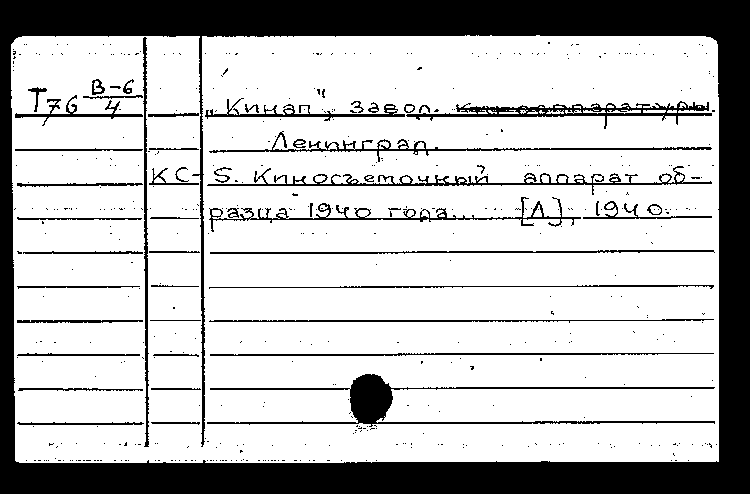 Т76 В-6/4 „Кинап", завод. киноаппаратуры.
Ленинград.
КС-5. Киносъемочный аппарат об-
разца 1940 года... [Л], 1940.